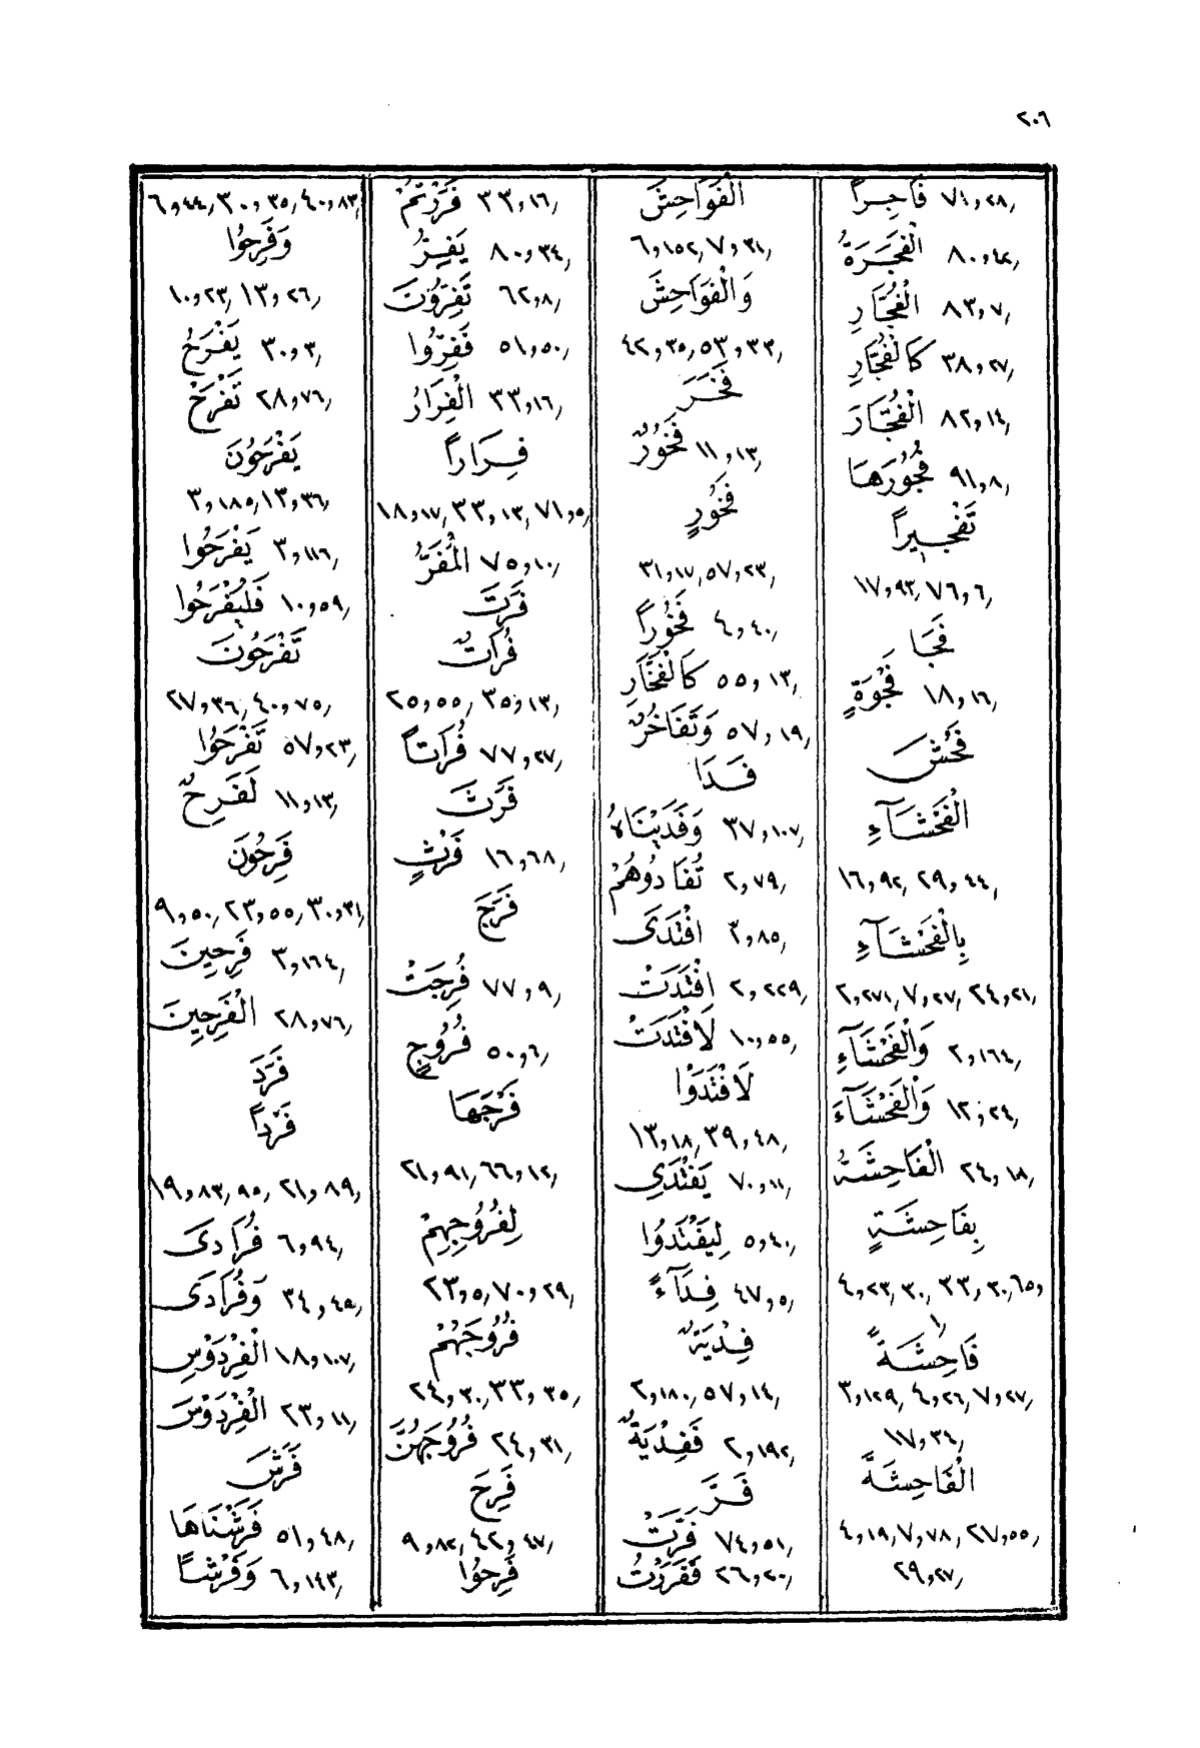 ٢٠٦
٧١,٢٨, فَاجِراً
٨٠,٤٢, الْفَجَرَةُ
٨٣,٧, الْفُجَّارِ
٣٨,٢٧, كَالْفُجَّارِ
٨٢,١٤, الْفُجَّارَ
٩١,٨, فُجُورَهَا
تَفْجِيراً
١٧,٩٣, ٧٦,٦,
فَجَا
١٨,١٦, فَجْوَةٍ
فَحُشَ
الْفَحْشَآءِ
١٦,٩٢, ٢٩,٤٤,
بِالْفَحْشَآءِ
٢,٢٧١, ٧,٢٧, ٢٤,٢١,
٢,١٦٤, وَالْفَحْشَآءِ
١٢,٢٤, وَالْفَحْشَآءَ
٢٤,١٨, الْفَاحِشَةُ
بِفَاحِشَةٍ
٤,٢٣, ٣٠, ٣٣,٣٠, ٦٥,
١,
فَاحِشَةً
٣,١٢٩, ٤,٢٦, ٧,٢٧,
١٧,٣٤,
الْفَاحِشَةَ
٤,١٩, ٧,٧٨, ٢٧,٥٥,
٢٩,٢٧,
الْفَوَاحِشَ
٦,١٥٢, ٧,٣١,
وَالْفَوَاحِشَ
٤٢,٣٥, ٥٣,٣٣,
فَخَرَ
١١,١٣, فَخُورٌ
فَخُورٍ
٣١,١٧, ٥٧,٢٣,
٤,٤٠, فَخُوراً
٥٥,١٣, كَالْفَخَّارِ
٥٧,١٩, وَتَفَاخُرٌ
فَدَا
٣٧,١٠٧, وَفَدَيْنَاهُ
٢,٧٩, تُفَادُوهُمْ
٣,٨٥, افْتَدَى
٢,٢٢٩, افْتَدَتْ
١٠,٥٥, لَافْتَدَتْ
لَافْتَدَوْا
١٣,١٨, ٣٩,٤٨,
٧٠,١١, يَفْتَدِي
٥,٤٠, لِيَفْتَدُوا
٤٧,٥, فِدَآءً
فِدْيَةٌ
٢,١٨٠, ٥٧,١٤,
٢,١٩٢, فَفِدْيَةٌ
فَرَّ
٧٤,٥١, فَرَّتْ
٢٦,٢٠, فَفَرَرْتُ
٣٣,١٦, فَرَرْتُمْ
٨٠,٣٤, يَفِرُّ
٦٢,٨, تَفِرُّونَ
٥١,٥٠, فَفِرُّوا
٣٣,١٦, الْفِرَارُ
فِرَاراً
١٨,١٧, ٣٣,١٣, ٧١,٥,
٧٥,١٠, الْمَفَرُّ
فَرَتَ
فُرَاتٌ
٢٥,٥٥, ٣٥,١٣,
٧٧,٢٧, فُرَاتاً
فَرَثَ
١٦,٦٨, فَرْثٍ
فَرَجَ
٧٧,٩, فُرِجَتْ
٥٠,٦, فُرُوجٍ
فَرْجَهَا
٢١,٩١, ٦٦,١٢,
لِفُرُوجِهِمْ
٢٣,٥, ٧٠,٢٩,
فُرُوجَهُمْ
٢٤,٣٠, ٣٣,٣٥,
٢٤,٣١, فُرُوجَهُنَّ
فَرِحَ
٩,٨٢, ٤٢,٤٧,
فَرِحُوا
٦,٤٤, ٣٠,٣٥, ٤٠,٨٣,
وَفَرِحُوا
١٠,٢٣, ١٣,٢٦,
٣٠,٣, يَفْرَحُ
٢٨,٧٦, تَفْرَحْ
يَفْرَحُونَ
٣,١٨٥, ١٣,٣٦,
٣,١١٦, يَفْرَحُوا
١٠,٥٩, فَلْيَفْرَحُوا
تَفْرَحُونَ
٢٧,٣٦, ٤٠,٧٥,
٥٧,٢٣, تَفْرَحُوا
١١,١٣, لَفَرِحٌ
فَرِحُونَ
٩,٥٠, ٢٣,٥٥, ٣٠,٣١,
٣,١٦٤, فَرِحِينَ
٢٨,٧٦, الْفَرِحِينَ
فَرَدَ
فَرْداً
١٩,٨٣, ٩٥, ٢١,٨٩,
٦,٩٤, فُرَادَى
٣٤,٤٥, وَفُرَادَى
١٨,١٠٧, الْفِرْدَوْسِ
٢٣,١١, الْفِرْدَوْسَ
فَرَشَ
٥١,٤٨, فَرَشْنَاهَا
٦,١٤٣, وَفَرْشاً